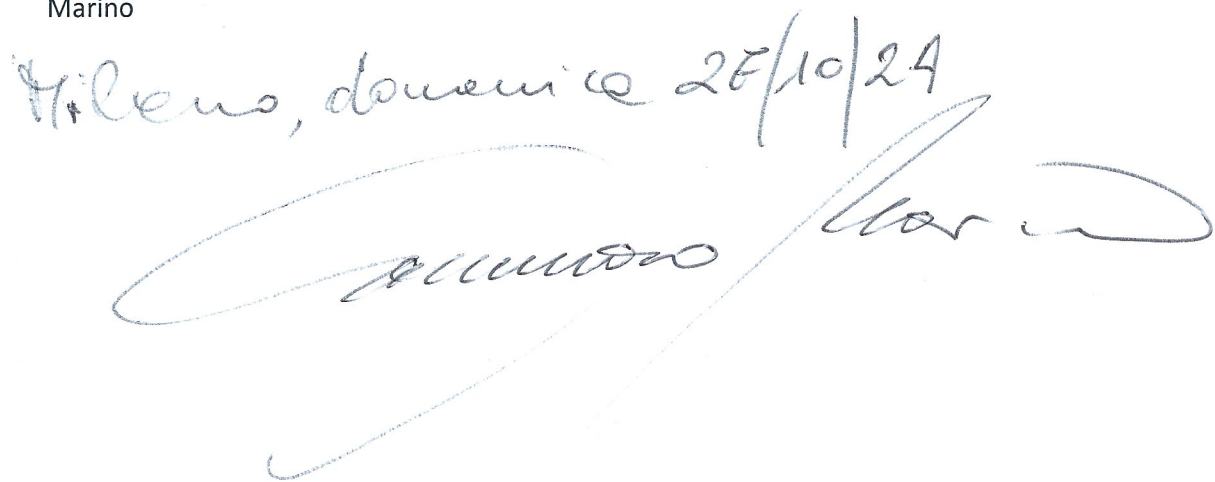 Marino
Milano, domenica 27/10/24
Tommaso Marino